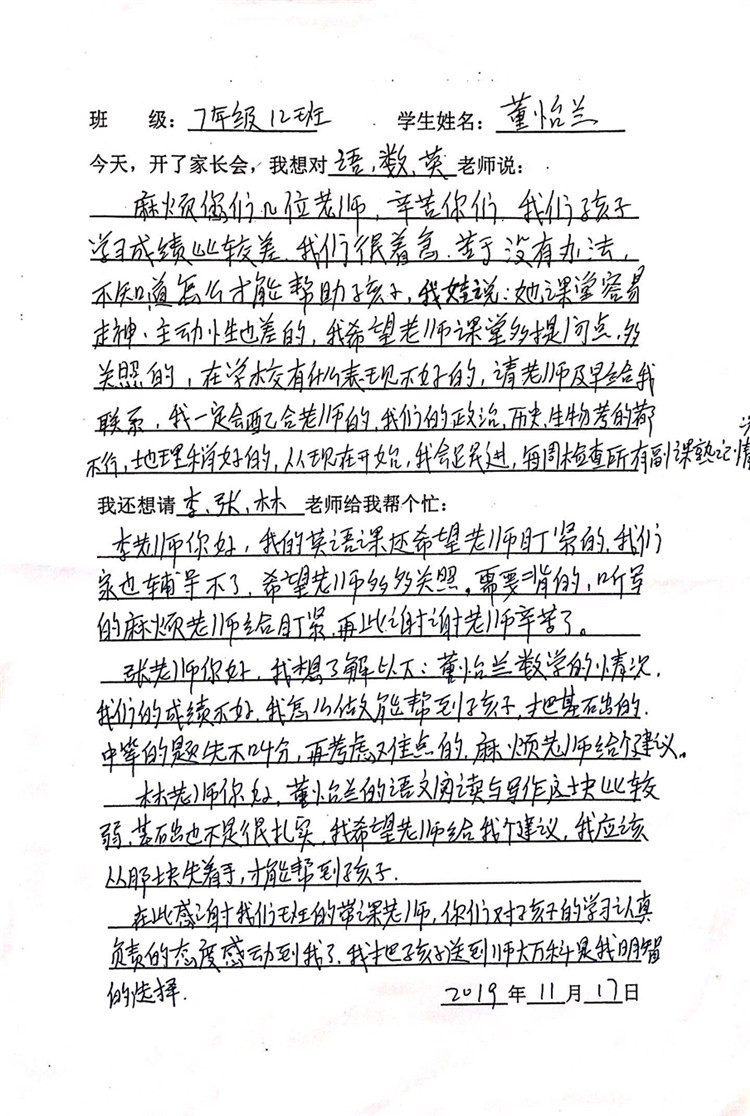 班 级：7年级12班 学生姓名：董怡兰
今天，开了家长会，我想对语，数，英老师说：
麻烦你们几位老师，辛苦你们，我们孩子
学习成绩比较差，我们很着急，苦于没有办法，
不知道怎么才能帮助孩子，我娃说：她课堂容易
走神、主动性也差的，我希望老师课堂多提问点，多
关照的，在学校有什么表现不好的，请老师及早给我
联系，我一定会配合老师的，我们的政治、历史、生物考的都
不行，地理稍好的，从现在开始，我会跟进，每周检查所有副课熟记情
我还想请李、张、林老师给我帮个忙：
李老师你好，我的英语课还希望老师盯紧的，我们
家也辅导不了，希望老师多多关照。需要背的，听写
的麻烦老师给盯紧，再此谢谢老师辛苦了。
张老师你好，我想了解以下：董怡兰数学的情况，
我们的成绩不好，我怎么做能帮到孩子，把基础的，
中等的题先不叫分，再考虑难点的，麻烦老师给个建议。
林老师你好，董怡兰的语文阅读与写作这块比较
弱，基础也不是很扎实，我希望老师给我个建议，我应该
从那块先着手，才能帮到孩子.
在此感谢我们班的带课老师，你们对孩子的学习认真
负责的态度感动到我了，我把孩子送到师大万科是我明智
的选择.
2019年11月17日